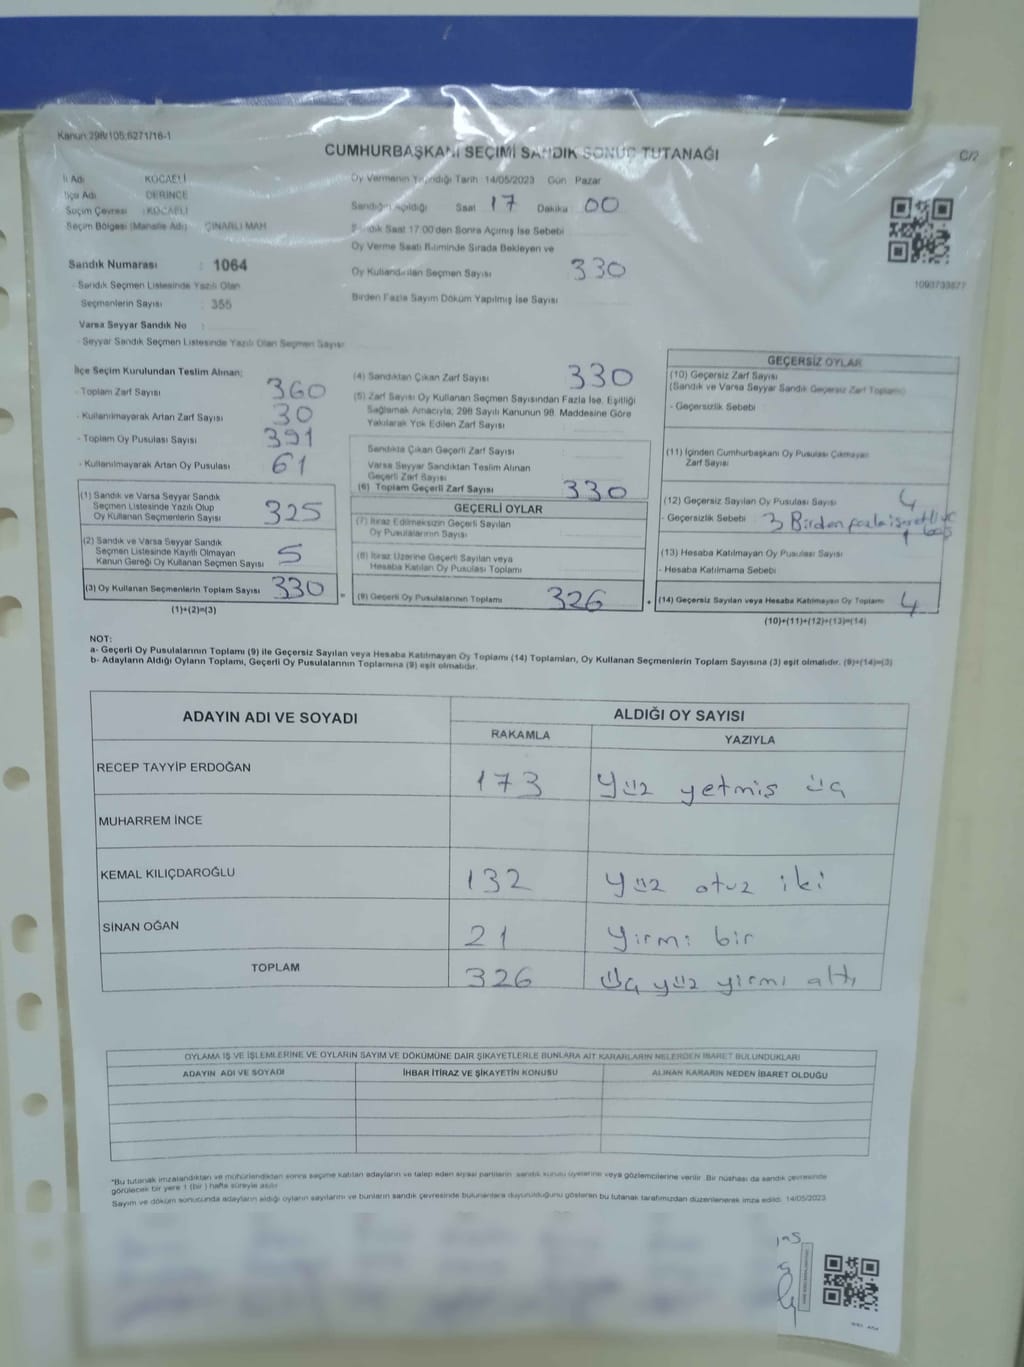 Kanun:298/105,6271/16-1
CUMHURBAŞKANI SEÇİMİ SANDIK SONUÇ TUTANAĞI
C/2
İl Adı KOCAELİ
İlçe Adı DERİNCE
Seçim Çevresi : KOCAELİ
Seçim Bölgesi (Mahalle Adı) ÇINARLI MAH
Sandık Numarası : 1064
- Sandık Seçmen Listesinde Yazılı Olan
Seçmenlerin Sayısı : 355
Varsa Seyyar Sandık No :
- Seyyar Sandık Seçmen Listesinde Yazılı Olan Seçmen Sayısı
Oy Vermenin Yapıldığı Tarih 14/05/2023 Gün Pazar
Sandığın Açıldığı Saat 17 Dakika 00
Sandık Saat 17:00'den Sonra Açılmış İse Sebebi
Oy Verme Saati Bitiminde Sırada Bekleyen ve
Oy Kullandırılan Seçmen Sayısı 330
Birden Fazla Sayım Döküm Yapılmış İse Sayısı
1093733877
İlçe Seçim Kurulundan Teslim Alınan;
- Toplam Zarf Sayısı 360
- Kullanılmayarak Artan Zarf Sayısı 30
- Toplam Oy Pusulası Sayısı 391
- Kullanılmayarak Artan Oy Pusulası 61
(1) Sandık ve Varsa Seyyar Sandık
Seçmen Listesinde Yazılı Olup
Oy Kullanan Seçmenlerin Sayısı 325
(2) Sandık ve Varsa Seyyar Sandık
Seçmen Listesinde Kayıtlı Olmayan
Kanun Gereği Oy Kullanan Seçmen Sayısı 5
(3) Oy Kullanan Seçmenlerin Toplam Sayısı 330
(1)+(2)=(3)
(4) Sandıktan Çıkan Zarf Sayısı 330
(5) Zarf Sayısı Oy Kullanan Seçmen Sayısından Fazla İse, Eşitliği
Sağlamak Amacıyla, 298 Sayılı Kanunun 98. Maddesine Göre
Yakılarak Yok Edilen Zarf Sayısı
Sandıkta Çıkan Geçerli Zarf Sayısı
Varsa Seyyar Sandıktan Teslim Alınan
Geçerli Zarf Sayısı
(6) Toplam Geçerli Zarf Sayısı 330
GEÇERLİ OYLAR
(7) İtiraz Edilmeksizin Geçerli Sayılan
Oy Pusulalarının Sayısı
(8) İtiraz Üzerine Geçerli Sayılan veya
Hesaba Katılan Oy Pusulası Toplamı
= (9) Geçerli Oy Pusulalarının Toplamı 326
GEÇERSİZ OYLAR
(10) Geçersiz Zarf Sayısı
(Sandık ve Varsa Seyyar Sandık Geçersiz Zarf Toplamı)
- Geçersizlik Sebebi
(11) İçinden Cumhurbaşkanı Oy Pusulası Çıkmayan
Zarf Sayısı
(12) Geçersiz Sayılan Oy Pusulası Sayısı 4
- Geçersizlik Sebebi : 3 Birden fazla işaretli ve
1 boş
(13) Hesaba Katılmayan Oy Pusulası Sayısı
- Hesaba Katılmama Sebebi
+ (14) Geçersiz Sayılan veya Hesaba Katılmayan Oy Toplamı 4
(10)+(11)+(12)+(13)=(14)
NOT:
a- Geçerli Oy Pusulalarının Toplamı (9) ile Geçersiz Sayılan veya Hesaba Katılmayan Oy Toplamı (14) Toplamları, Oy Kullanan Seçmenlerin Toplam Sayısına (3) eşit olmalıdır. (9)+(14)=(3)
b- Adayların Aldığı Oyların Toplamı, Geçerli Oy Pusulalarının Toplamına (9) eşit olmalıdır.
ADAYIN ADI VE SOYADI
ALDIĞI OY SAYISI
RAKAMLA YAZIYLA
RECEP TAYYİP ERDOĞAN 173 Yüz yetmiş üç
MUHARREM İNCE
KEMAL KILIÇDAROĞLU 132 Yüz otuz iki
SİNAN OĞAN 21 Yirmi bir
TOPLAM 326 Üç yüz yirmi altı
OYLAMA İŞ VE İŞLEMLERİNE VE OYLARIN SAYIM VE DÖKÜMÜNE DAİR ŞİKAYETLERLE BUNLARA AİT KARARLARIN NELERDEN İBARET BULUNDUKLARI
ADAYIN ADI VE SOYADI İHBAR İTİRAZ VE ŞİKAYETİN KONUSU ALINAN KARARIN NEDEN İBARET OLDUĞU
"Bu tutanak imzalandıktan ve mühürlendikten sonra seçime katılan adayların ve talep eden siyasi partilerin sandık kurulu üyelerine veya gözlemcilerine verilir. Bir nüshası da sandık çevresinde
görülecek bir yere 1 (bir) hafta süreyle asılır
Sayım ve döküm sonucunda adayların aldığı oyların sayılarını ve bunların sandık çevresinde bulunanlara duyurulduğunu gösteren bu tutanak tarafımızdan düzenlenerek imza edildi. 14/05/2023